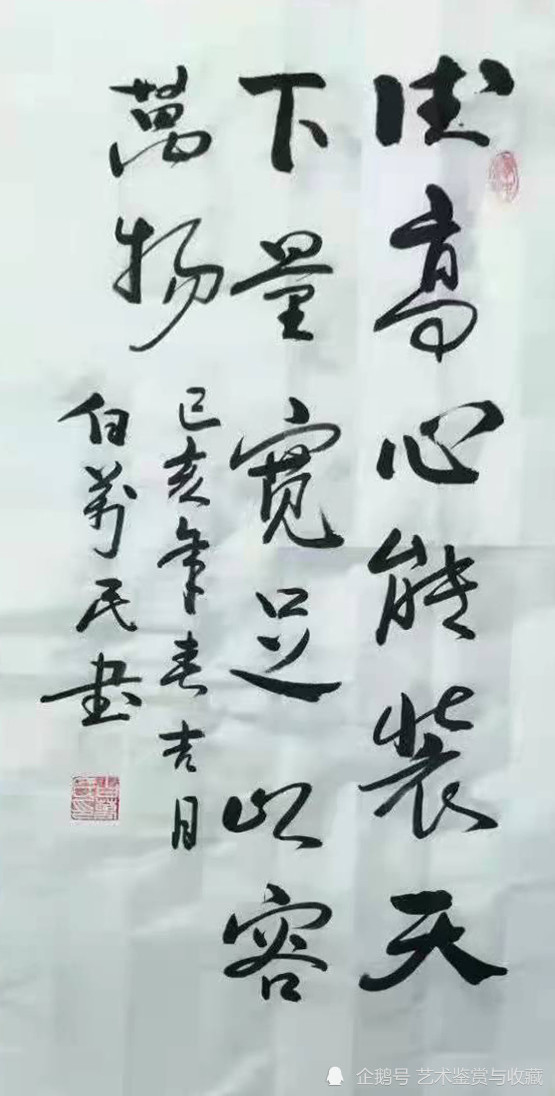 德高心能装天
下量宽足以容
萬物
己亥年春吉月
白万民书
企鹅号 艺术鉴赏与收藏